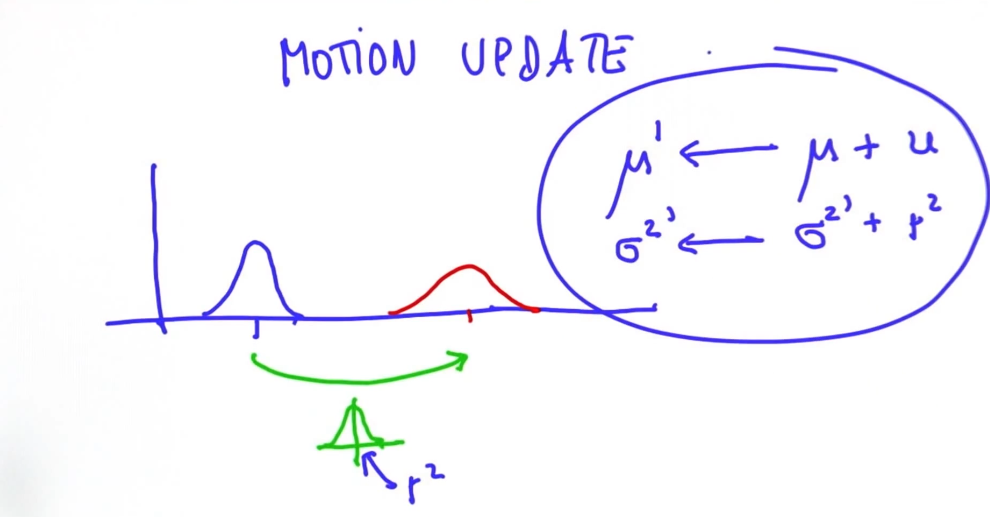 MOTION UPDATE
μ' ← μ + u
σ²' ← σ²' + r²
r²